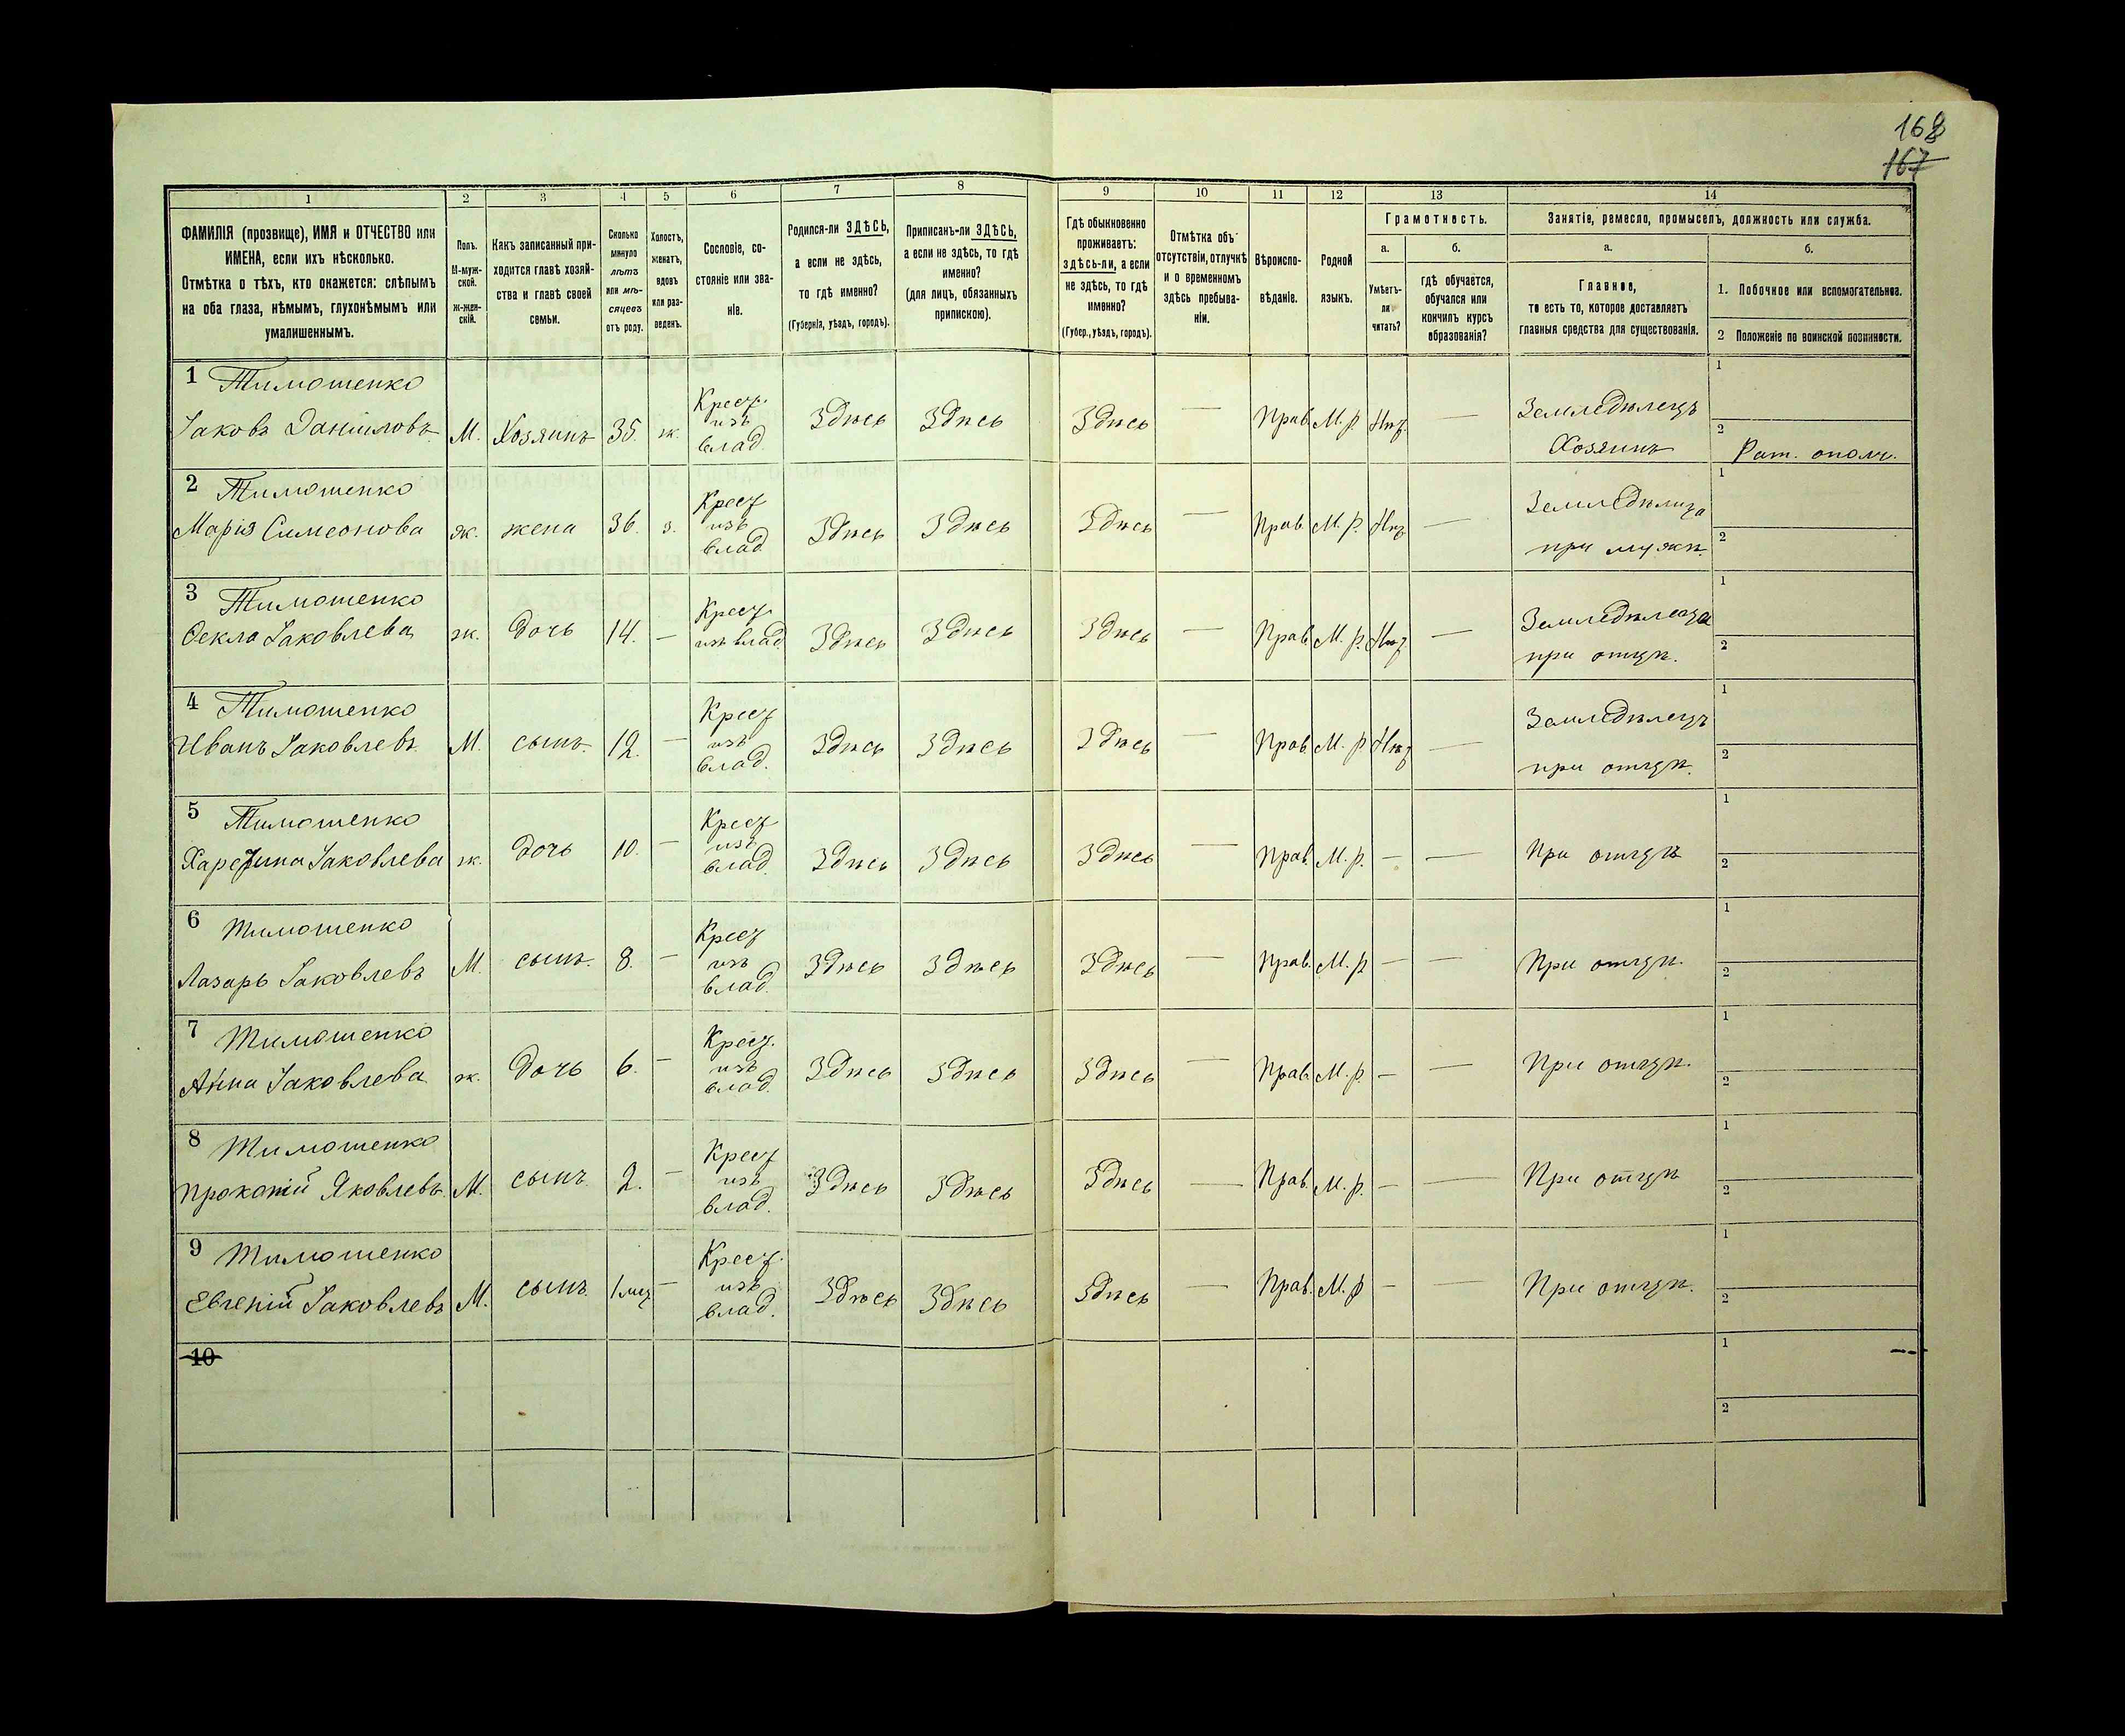 168
167
1 2 3 4 5 6 7 8 9 10 11 12 13 14
ФАМИЛІЯ (прозвище), ИМЯ и ОТЧЕСТВО или
ИМЕНА, если ихъ нѣсколько.
Отмѣтка о тѣхъ, кто окажется: слѣпымъ
на оба глаза, нѣмымъ, глухонѣмымъ или
умалишеннымъ.
Полъ.
М-муж-
ской.
ж-жен-
скій.
Какъ записанный при-
ходится главѣ хозяй-
ства и главѣ своей
семьи.
Сколько
минуло
лѣтъ
или мѣ-
сяцевъ
отъ роду.
Холостъ,
женатъ,
вдовъ
или раз-
веденъ.
Сословіе, со-
стояніе или зва-
ніе.
Родился-ли ЗДѢСЬ,
а если не здѣсь,
то гдѣ именно?
(Губернія, уѣздъ, городъ).
Приписанъ-ли ЗДѢСЬ,
а если не здѣсь, то гдѣ
именно?
(для лицъ, обязанныхъ
припискою).
Гдѣ обыкновенно
проживаетъ:
здѣсь-ли, а если
не здѣсь, то гдѣ
именно?
(Губер., уѣздъ, городъ).
Отмѣтка объ
отсутствіи, отлучкѣ
и о временномъ
здѣсь пребыва-
ніи.
Вѣроиспо-
вѣданіе.
Родной
языкъ.
Грамотность.
а.
Умѣетъ-
ли
читать?
б.
гдѣ обучается,
обучался или
кончилъ курсъ
образованія?
Занятіе, ремесло, промыселъ, должность или служба.
а.
Главное,
то есть то, которое доставляетъ
главныя средства для существованія.
б.
1. Побочное или вспомогательное.
2 Положеніе по воинской повинности.
1 Тимошенко
Іаковъ Даніиловъ М. Хозяинъ 35. ж. Крест. изъ влад. Здѣсь Здѣсь Здѣсь — Прав. М. р. Нѣт. — Земледѣлецъ Хозяинъ 1 2 Рат. ополч.
2 Тимошенко
Марія Симеонова ж. жена 36. з. Крест изъ влад. Здѣсь Здѣсь Здѣсь — Прав. М. р. Нѣт — Земледѣлица при мужѣ. 1 2
3 Тимошенко
Ѳекла Іаковлева ж. дочь 14. — Крест изъ влад. Здѣсь Здѣсь Здѣсь — Прав. М. р. Нѣт — Земледѣлеца при отцѣ. 1 2
4 Тимошенко
Иванъ Іаковлевъ М. сынъ. 12. — Крест изъ влад. Здѣсь Здѣсь Здѣсь — Прав. М. р. Нѣт — Земледѣлецъ при отцѣ. 1 2
5 Тимошенко
Харетина Іаковлева ж. дочь 10. — Крест изъ влад. Здѣсь Здѣсь Здѣсь — Прав. М. р. — — При отцѣ 1 2
6 Тимошенко
Лазарь Іаковлевъ М. сынъ. 8. — Крест изъ влад. Здѣсь Здѣсь Здѣсь — Прав. М. р — — При отцѣ. 1 2
7 Тимошенко
Анна Іаковлева ж. дочь 6. — Крест. изъ влад. Здѣсь Здѣсь Здѣсь — Прав. М. р. — — При отцѣ. 1 2
8 Тимошенко
Прокопій Яковлевъ М. сынъ. 2. — Крест изъ влад. Здѣсь Здѣсь Здѣсь — Прав. М. р. — — При отцѣ 1 2
9 Тимошенко
Евгеній Іаковлевъ М. сынъ. 1 мц — Крест. изъ влад. Здѣсь Здѣсь Здѣсь — Прав. М. р — — При отцѣ. 1 2
10 1 2